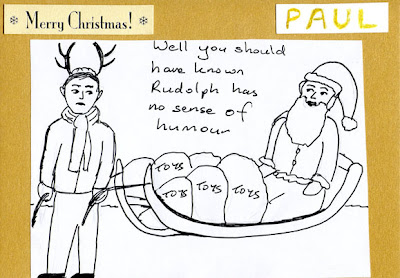 * Merry Christmas! *
PAUL
Well you should
have known
Rudolph has
no sense of
humour
TOYS
TOYS TOYS TOYS